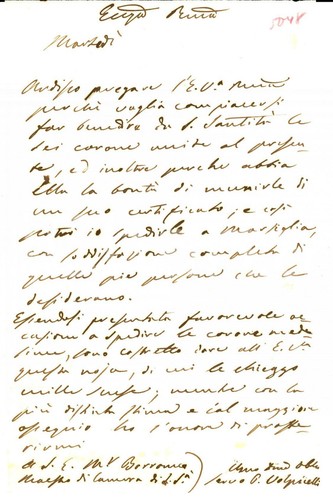 Eccza Rma
5048
Martedì
Ardisco pregare l'E. Va Rma
perchè voglia compiacersi
far benedire da S. Santità le
sei corone unite al presen
te, ed inoltre perche abbia
Ella la bontà di munirle di
un suo certificato; e così
potrò io spedirle a Marsiglia,
con soddisfazione completa di
quelle pie persone che le
desiderano.
Essendosi presentata favorevole oc
casione a spedire le corone mede
sime, sono costretto dare all'E. Va
questa noja, di cui le chieggo
mille scuse; mentre con la
più distinta stima e col maggiore
ossequio ho l'onore di prosse
rivermi
di S. E. Mr Borromeo
Maestro di Camera di S. Sà
Umo Dmo obbo
servo P. Volpicelli